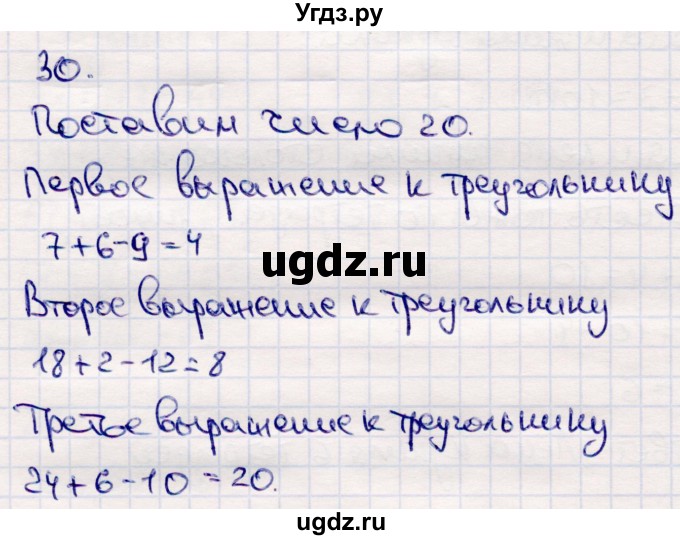 Угдз.ру
30.
Поставим число 20.
Первое выражение к треугольнику
7+6-9=4
ugdz.ru
Второе выражение к треугольнику
18+2-12=8
Третье выражение к треугольнику
24+6-10=20.
ugdz.ru